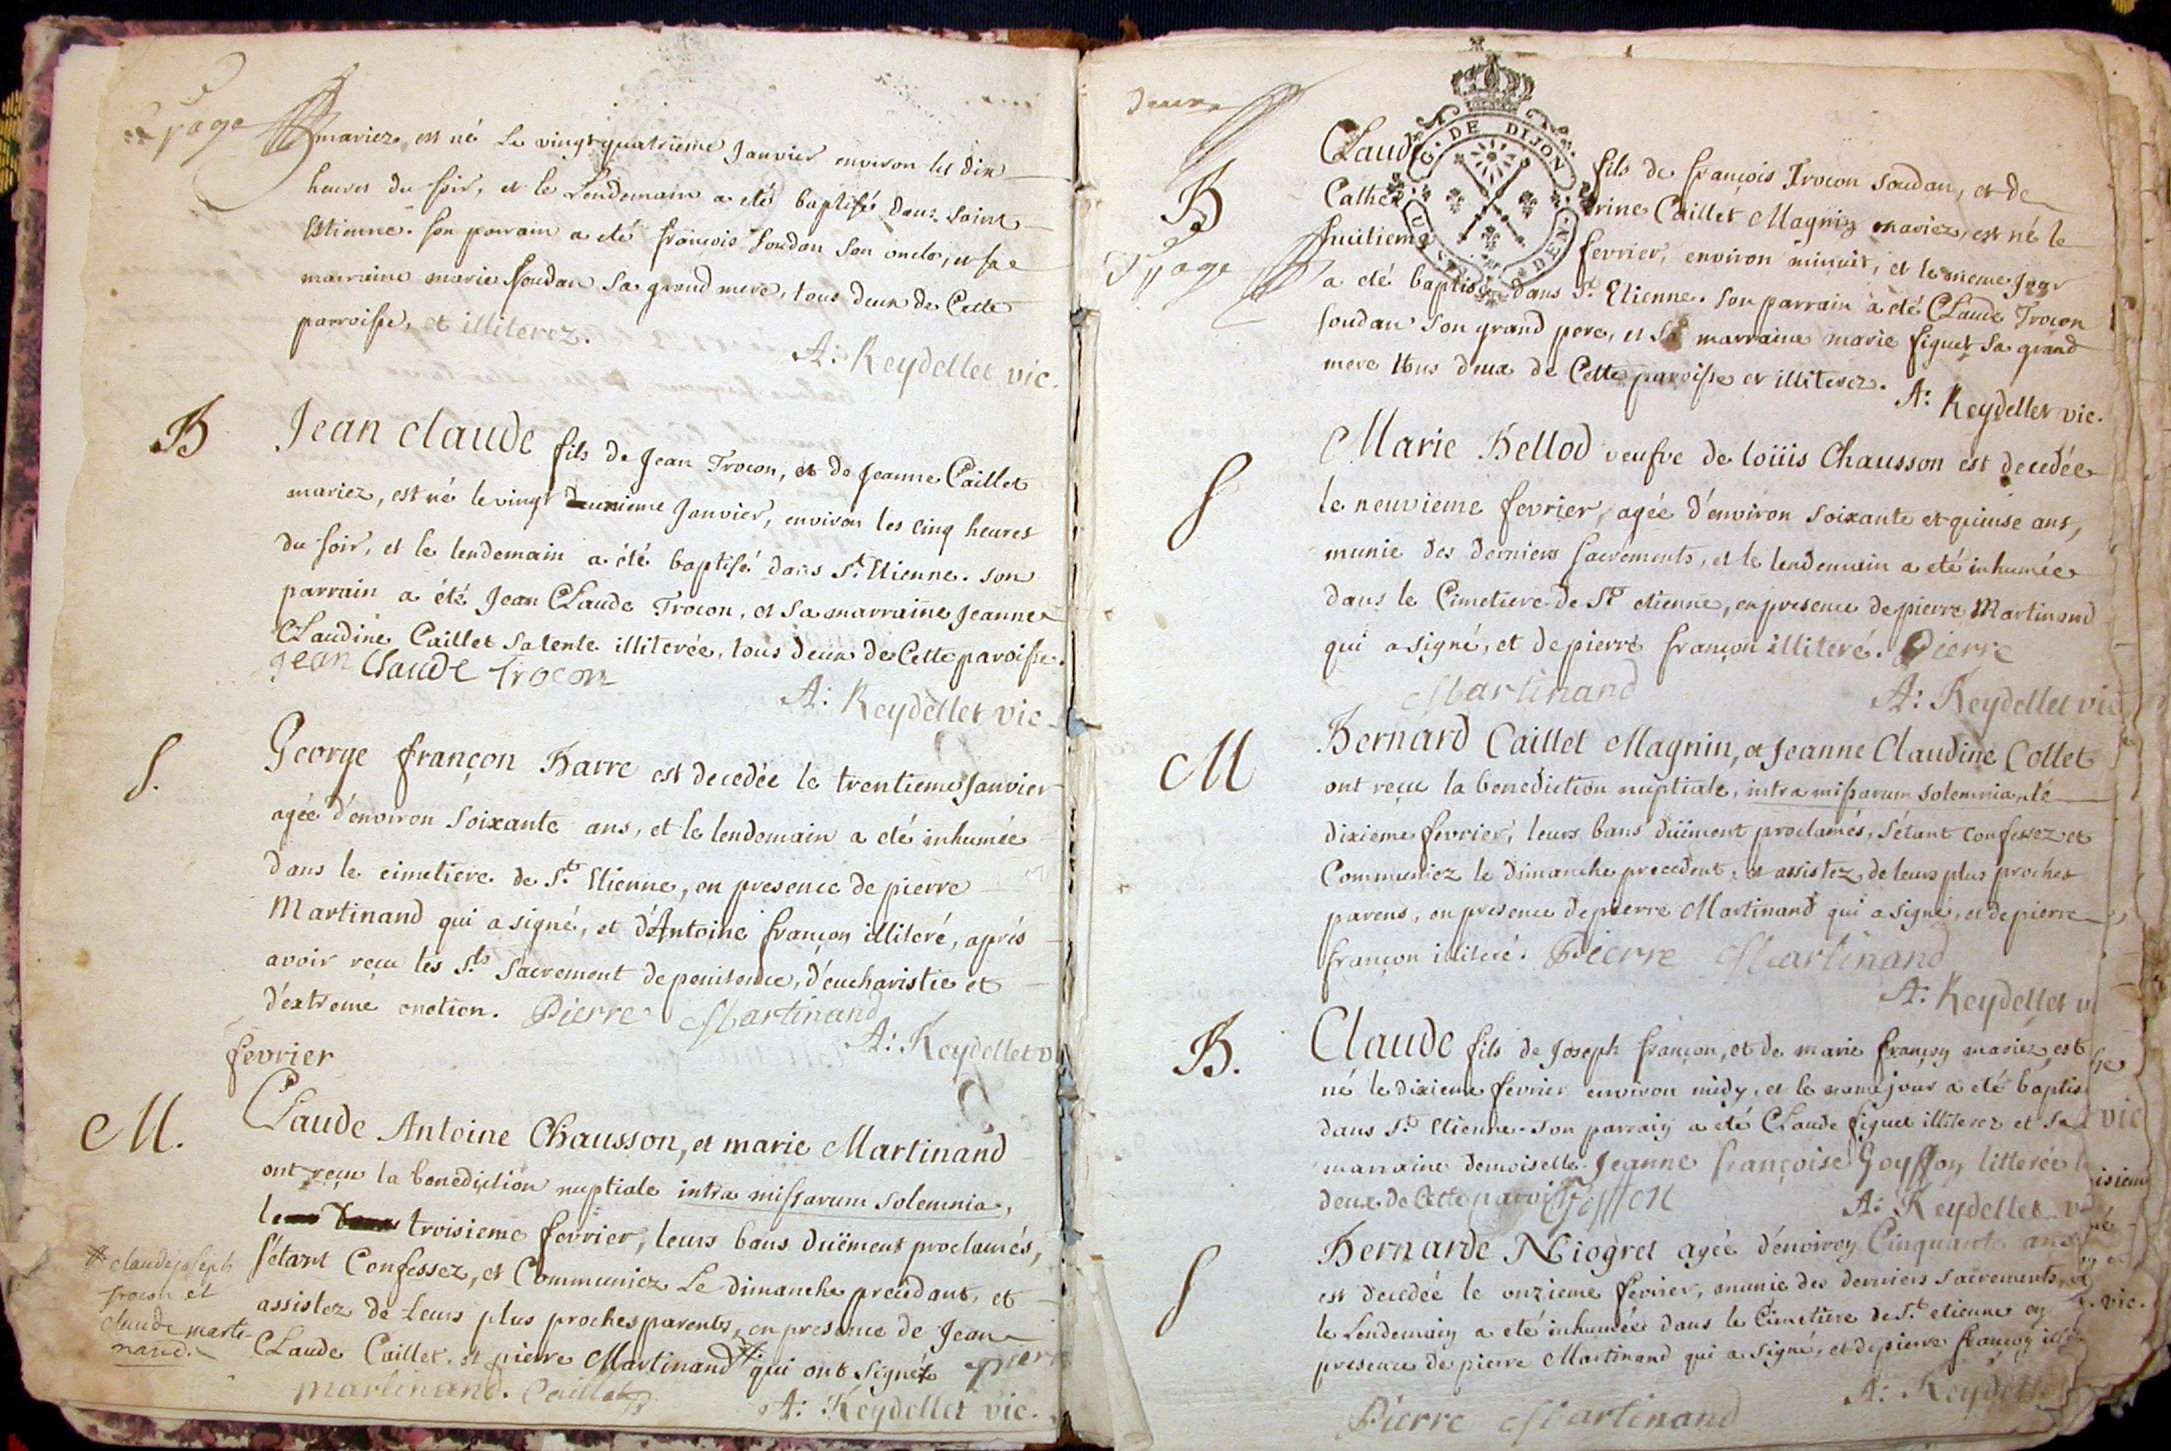 2 page
mariez, est né le vingt quatrieme Janvier environ les dix
heures du soir, et le Lendemain a eté baptisé dans saint
Etienne. son parrain a eté françois soudan son oncle, et sa
marraine marie soudan sa grand mere, tous deux de Cette
parroisse, et illiterez.
A: Reydellet vic.
B
Jean claude fils de Jean Trocon, et de Jeanne Caillet
mariez, est né le vingt deuxieme Janvier, environ les cinq heures
du soir, et le lendemain a été baptisé dans St. Etienne. son
parrain a été Jean Claude Trocon, et sa marraine Jeanne
Claudine Caillet sa tente illiterée, tous deux de Cette paroisse.
jean Claude trocon
A: Reydellet vic
S.
George françon Barre est decedée le trentieme Janvier
agée d'environ soixante ans, et le lendemain a eté inhumée
dans le cimetiere de St. Etienne, en presence de pierre
Martinand qui a signé, et d'Antoine françon illiteré, aprés
avoir reçu les Sts. sacrement de penitence, d'eucharistie et
d'extreme onction. Pierre Martinand
A: Reydellet v
fevrier
M.
Claude Antoine Chausson, et marie Martinand
ont reçu la benediction nuptiale intra missarum solemnia,
le troisieme fevrier, leurs bans duëment proclamés,
s'étant Confessez, et Communiez Le dimanche precedant, et
assistez de Leurs plus proches parents, en presence de Jean
Claude Caillet, et pierre Martinand # qui ont signé pierre
# claude joseph
trocon et
claude marti-
nand.
martinand. Caillet
A: Reydellet vic.
deux
C. DE DIJON
B
Claude fils de françois Trocon soudan, et de
Catherine Caillet Magnin mariez, est né le
huitieme fevrier, environ minuit, et le meme Jour
3 page
a eté baptisé dans St. Etienne. son parrain a eté Claude Trocon
soudan son grand pere, et sa marraine marie figuet sa grand
mere tous deux de Cette paroisse et illiterez.
A: Reydellet vic.
S
Marie Bellod veufve de loüis Chausson est decedée
le neuvieme fevrier, agée d'environ soixante et quinse ans,
munie des derniers sacrements, et le lendemain a eté inhumée
dans le Cimetiere de St etienne, en presence de pierre Martinand
qui a signé, et de pierre françon illiteré. Pierre
Martinand
A: Reydellet vic
M
Bernard Caillet Magnin, et Jeanne Claudine Collet
ont reçu la benediction nuptiale, intra missarum solemnia, le
dixieme fevrier, leurs bans düëment proclamés, s'étant confessez et
Communiez le dimanche precedent, et assistez de leurs plus proches
parens, en presence de pierre Martinand qui a signé, et de pierre
françon illiteré. Pierre Martinand
A: Reydellet v
B.
Claude fils de Joseph françon, et de marie françon mariez, est
né le dixieme fevrier environ midy, et le meme jour a eté baptisé
dans St. Etienne. son parrain a eté Claude figuet illiterez et sa
marraine demoiselle Jeanne françoise Goyffon litterée
deux de Cette paroisse
A: Reydellet v
S
Bernarde Niogret agée d'environ Cinquante ans
est decedée le onzieme fevrier, munie des derniers sacrements, et
le Lendemain a eté inhumée dans le Cimetiere de St. etienne en
presence de pierre Martinand qui a signé, et de pierre françon
A: Reydellet
Pierre Martinand